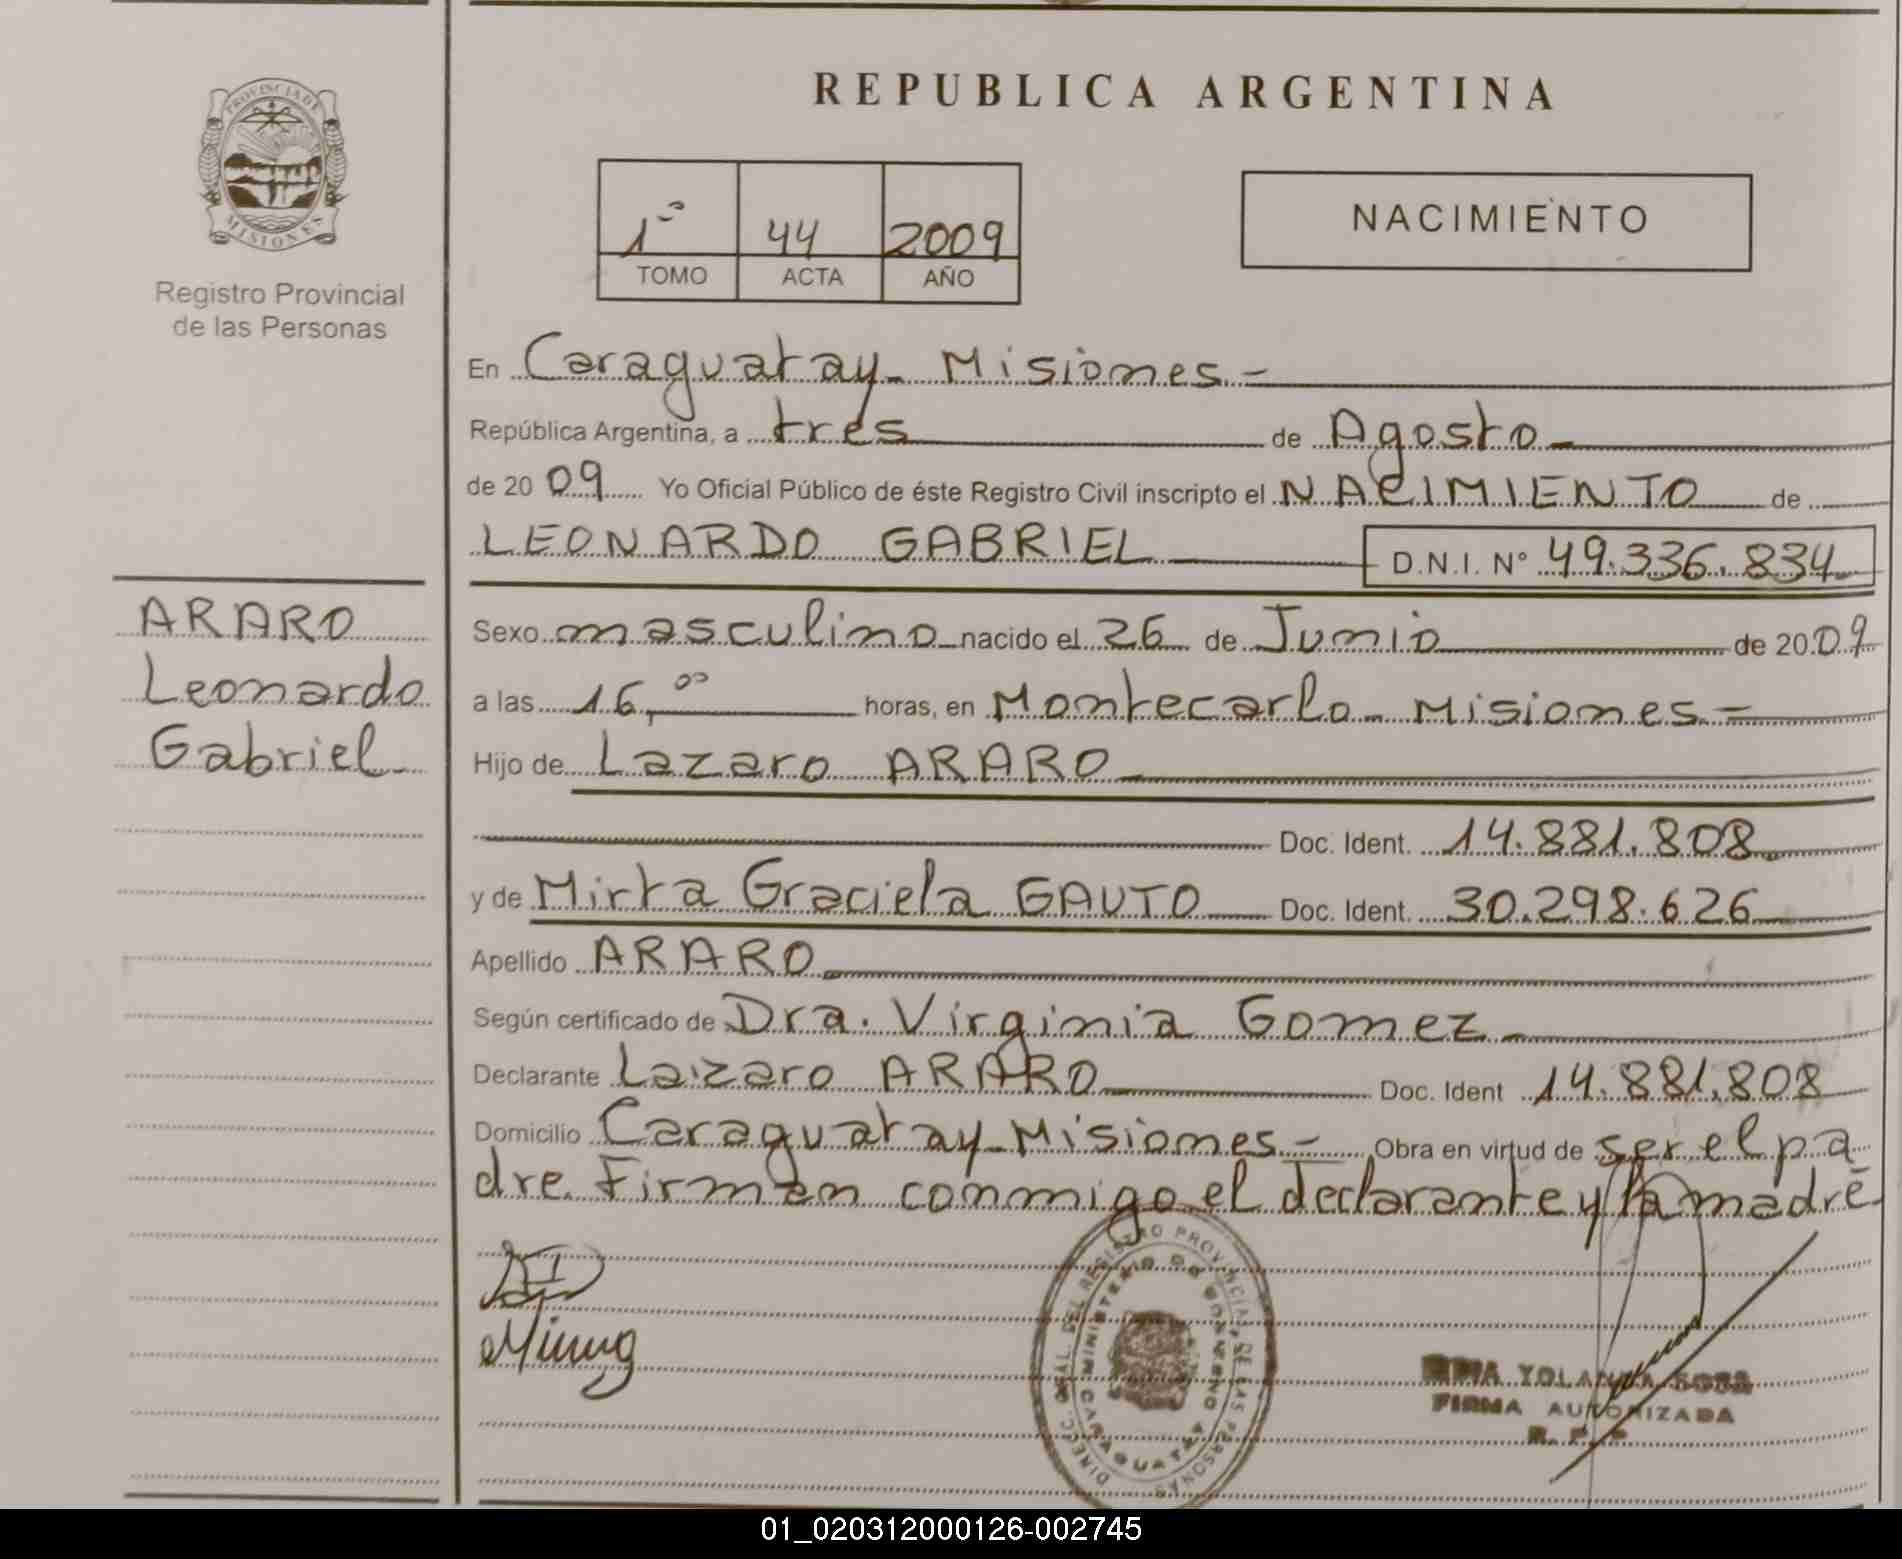 PROVINCIA DE
MISIONES
Registro Provincial
de las Personas
ARARO
Leonardo
Gabriel
REPUBLICA ARGENTINA
1º 44 2009
TOMO ACTA AÑO
NACIMIENTO
En Caraguatay - Misiones -
República Argentina, a tres de Agosto
de 2009 Yo Oficial Público de éste Registro Civil inscripto el NACIMIENTO de
LEONARDO GABRIEL D.N.I. Nº 49.336.834
Sexo masculino nacido el 26 de Junio de 2009
a las 16,00 horas, en Montecarlo - Misiones -
Hijo de Lazaro ARARO
Doc. Ident. 14.881.808
y de Mirta Graciela GAUTO Doc. Ident. 30.298.626
Apellido ARARO
Según certificado de Dra. Virginia Gomez
Declarante Lazaro ARARO Doc. Ident 14.881.808
Domicilio Caraguatay - Misiones - Obra en virtud de ser el pa
dre. Firman conmigo el declarante y la madre
DIRECC. GRAL. DEL REGISTRO PROVINCIAL DE LAS PERSONAS
MINISTERIO DE GOBIERNO
CARAGUATAY
YOLANDA SOSA
FIRMA AUTORIZADA
R. P. P
01_020312000126-002745